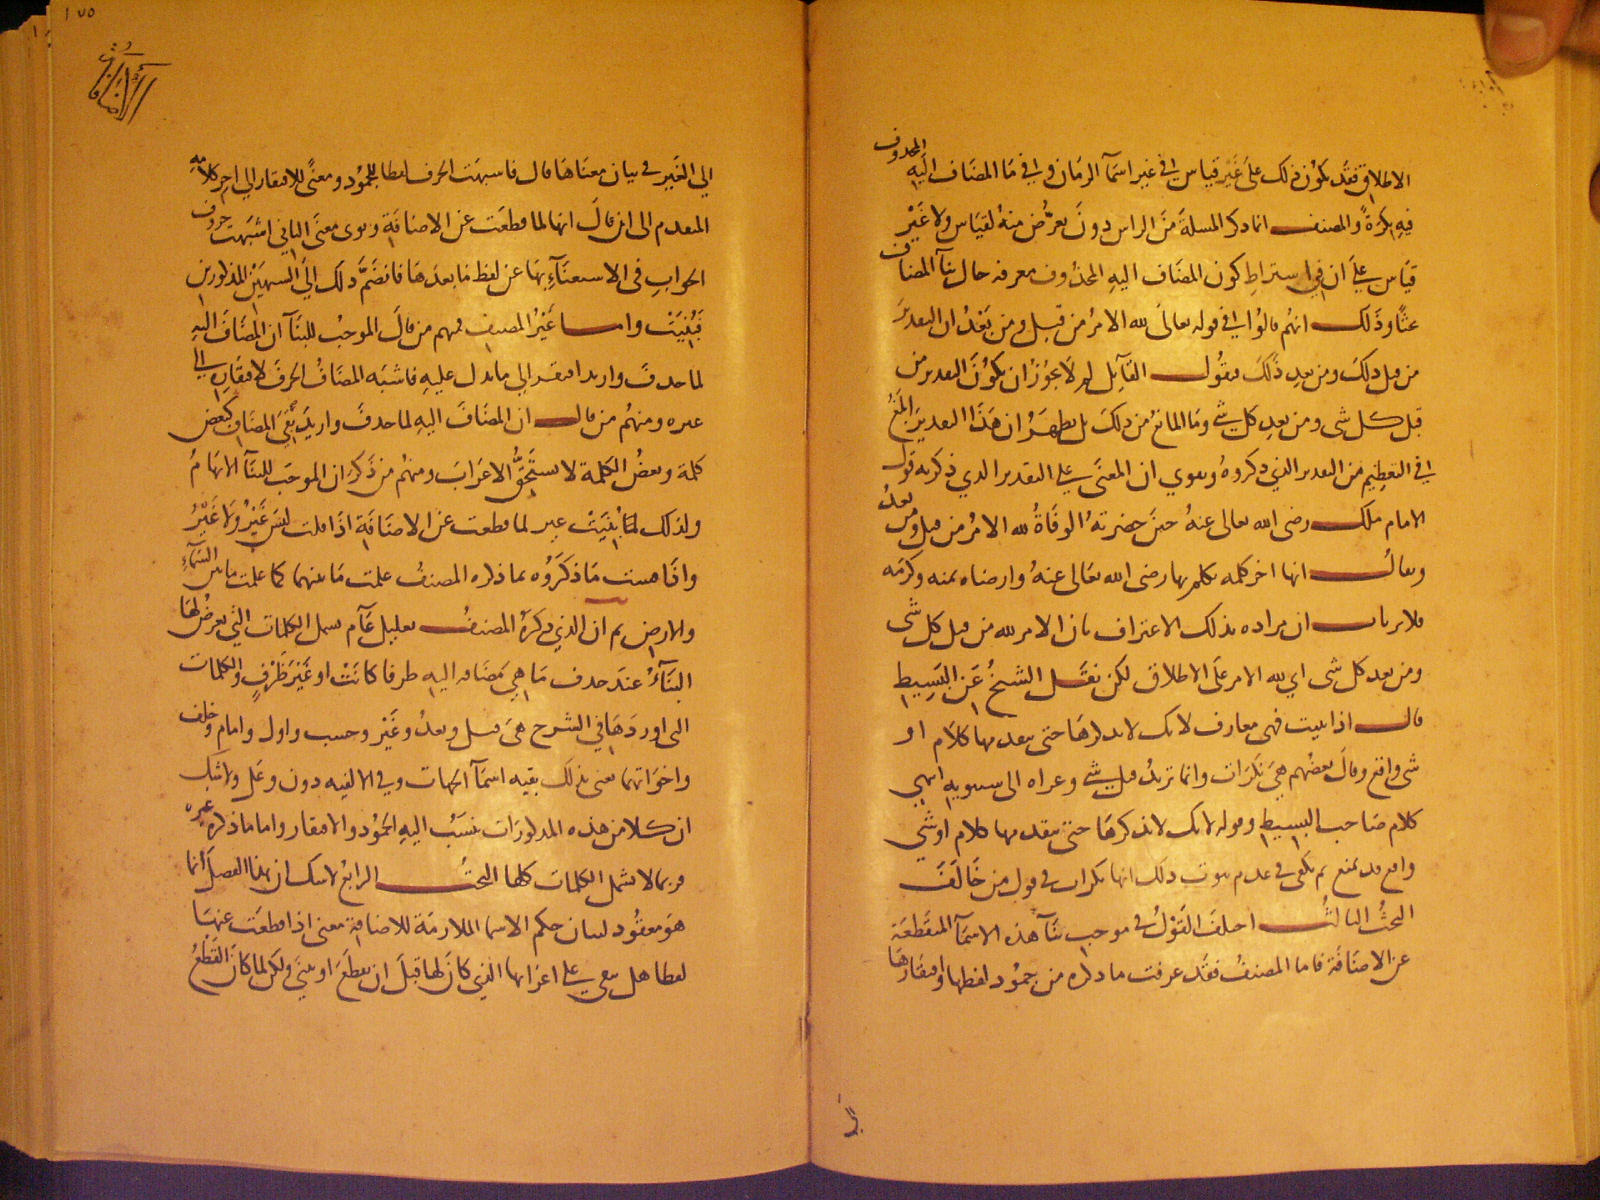 الاطلاق فقد يكون ذلك على غير قياس اي في غير اسمآ الزمان وفي ما المضاف اليه المحذوف
فيه نكرة والمصنف انما ذكر المسلة من الراس دون تعرض منه لقياس ولا غير
قياس على ان في اشتراط كون المضاف اليه المحذوف معرفة حال بنآ المضاف
عنا وذلك انهم قالوا اي في قوله تعالى لله الامر من قبل ومن بعد ان التقدير
من قبل ذلك ومن بعد ذلك فيقول القآيل لم لا يجوز ان يكون التقدير من
قبل كل شى ومن بعد كل شي وما المانع من ذلك بل يظهر ان هذا التقدير ابلغ
في التعظيم من التقدير الذي ذكروه ويقوي ان المعنى على التقدير الذي ذكرته قول
الامام ملك رضى الله تعالى عنه حين حضرته الوفاة لله الامر من قبل ومن بعد
ويقال انها اخر كلمه تكلم بها رضى الله تعالى عنه وارضاه بمنه وكرمه
فلا يرتاب ان مراده بذلك الاعتراف بان الامر لله من قبل كل شى
ومن بعد كل شى اي لله الامر على الاطلاق لكن نقل الشيخ عن البسيط
قال اذا بنيت فهى معارف لانك لا تذكرها حتى يتقدمها كلام او
شى واقع وقال بعضهم هي نكرات وانما تريد قبل شي وعزاه الى سيبويه انتهي
كلام صاحب البسيط وقوله لانك لا تذكرها حتى يتقدمها كلام او شي
واقع قد يمنع ثم يكفى في عدم ثبوت ذلك انها نكرات في قول من خالف
البحث الثالث اختلف القول في موجب بنآ هذه الاسمآ المنقطعة
عن الاضافة فاما المصنف فقد عرفت ما ذكره من جمود لفظها وافتقارها
الاضافة
١٧٥
الي الغير في بيان معناها قال فاشبهت الحرف لفظا للجمود ومعنى للافتقار الي اخر كلامه
المتقدم الى ان قال انها لما قطعت عن الاضافة ونوى معنى الثاني اشبهت حروف
الجواب فى الاستغنآء بها عن لفظ ما بعدها فانضم ذلك الي الشبهين المذكورين
فبنيت واما غير المصنف فمهم من قال الموجب للبنآ ان المضاف اليه
لما حذف واريد افتقر الي ما يدل عليه فاشبه المضاف الحرف لافتقاره الى
غيره ومنهم من قال ان المضاف اليه لما حذف واريد بقي المضاف كبعض
كلمة وبعض الكلمة لا يستحق الاعراب ومنهم من ذكر ان الموجب للبنآ الابهام
ولذلك لما بنيت غير لما قطعت عن الاضافة اذا قلت ليس غير ولا غير
واذا قست ما ذكروه بما ذكره المصنف علمت ما بينهما كما علمت ما بين السمآء
والارض ثم ان الذي ذكره المصنف تعليل عآم يشمل الكلمات التي يعرض لها
البنآء عند حذف ما هي مضافه اليه ظرفا كانت او غير ظرف والكلمات
التى اوردها في الشرح هى قبل وبعد وغير وحسب واول وامام وخلف
واخواتهما يعنى بذلك بقيه اسمآ الجهات وفي الالفيه دون وعل ولا شك
ان كلا من هذه المذكورات ينسب اليه الجمود والافتقار واما ما ذكره غيره
فربما لا يشمل الكلمات كلها البحث الرابع لا شك ان هذا الفصل انما
هو معقود لبيان حكم الاسما الملازمة للاضافة معنى اذا قطعت عنها
لفظا هل تبقى على اعرابها الذي كان لها قبل ان تقطع او تبنى ولكن لما كان القطع